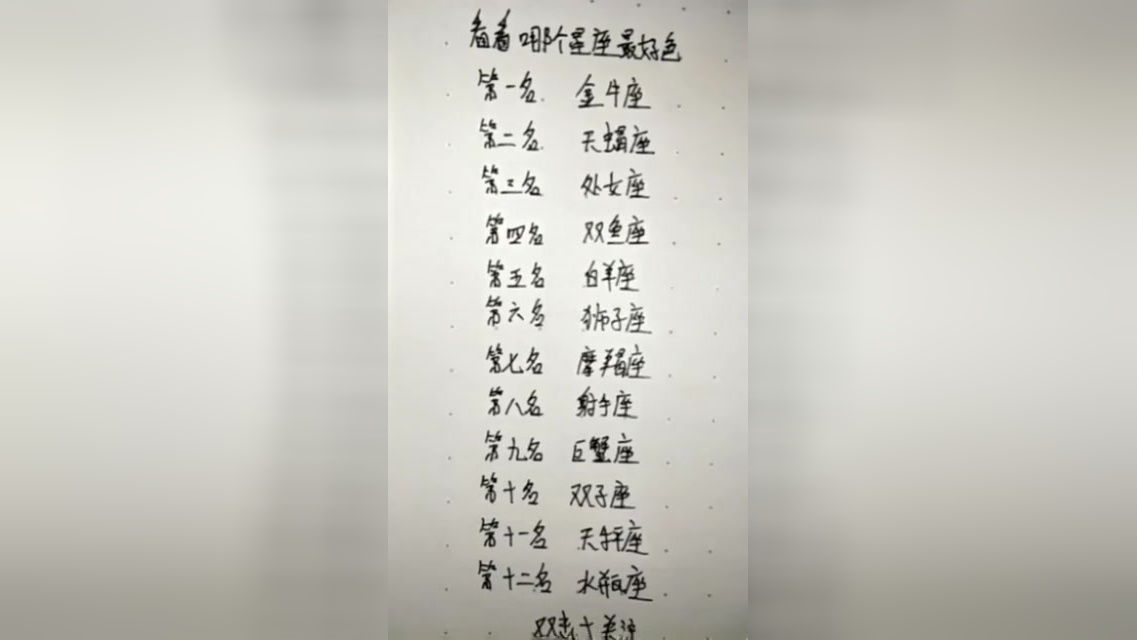 看看哪个星座最好色
第一名 金牛座
第二名 天蝎座
第三名 处女座
第四名 双鱼座
第五名 白羊座
第六名 狮子座
第七名 摩羯座
第八名 射手座
第九名 巨蟹座
第十名 双子座
第十一名 天秤座
第十二名 水瓶座
双击十关注